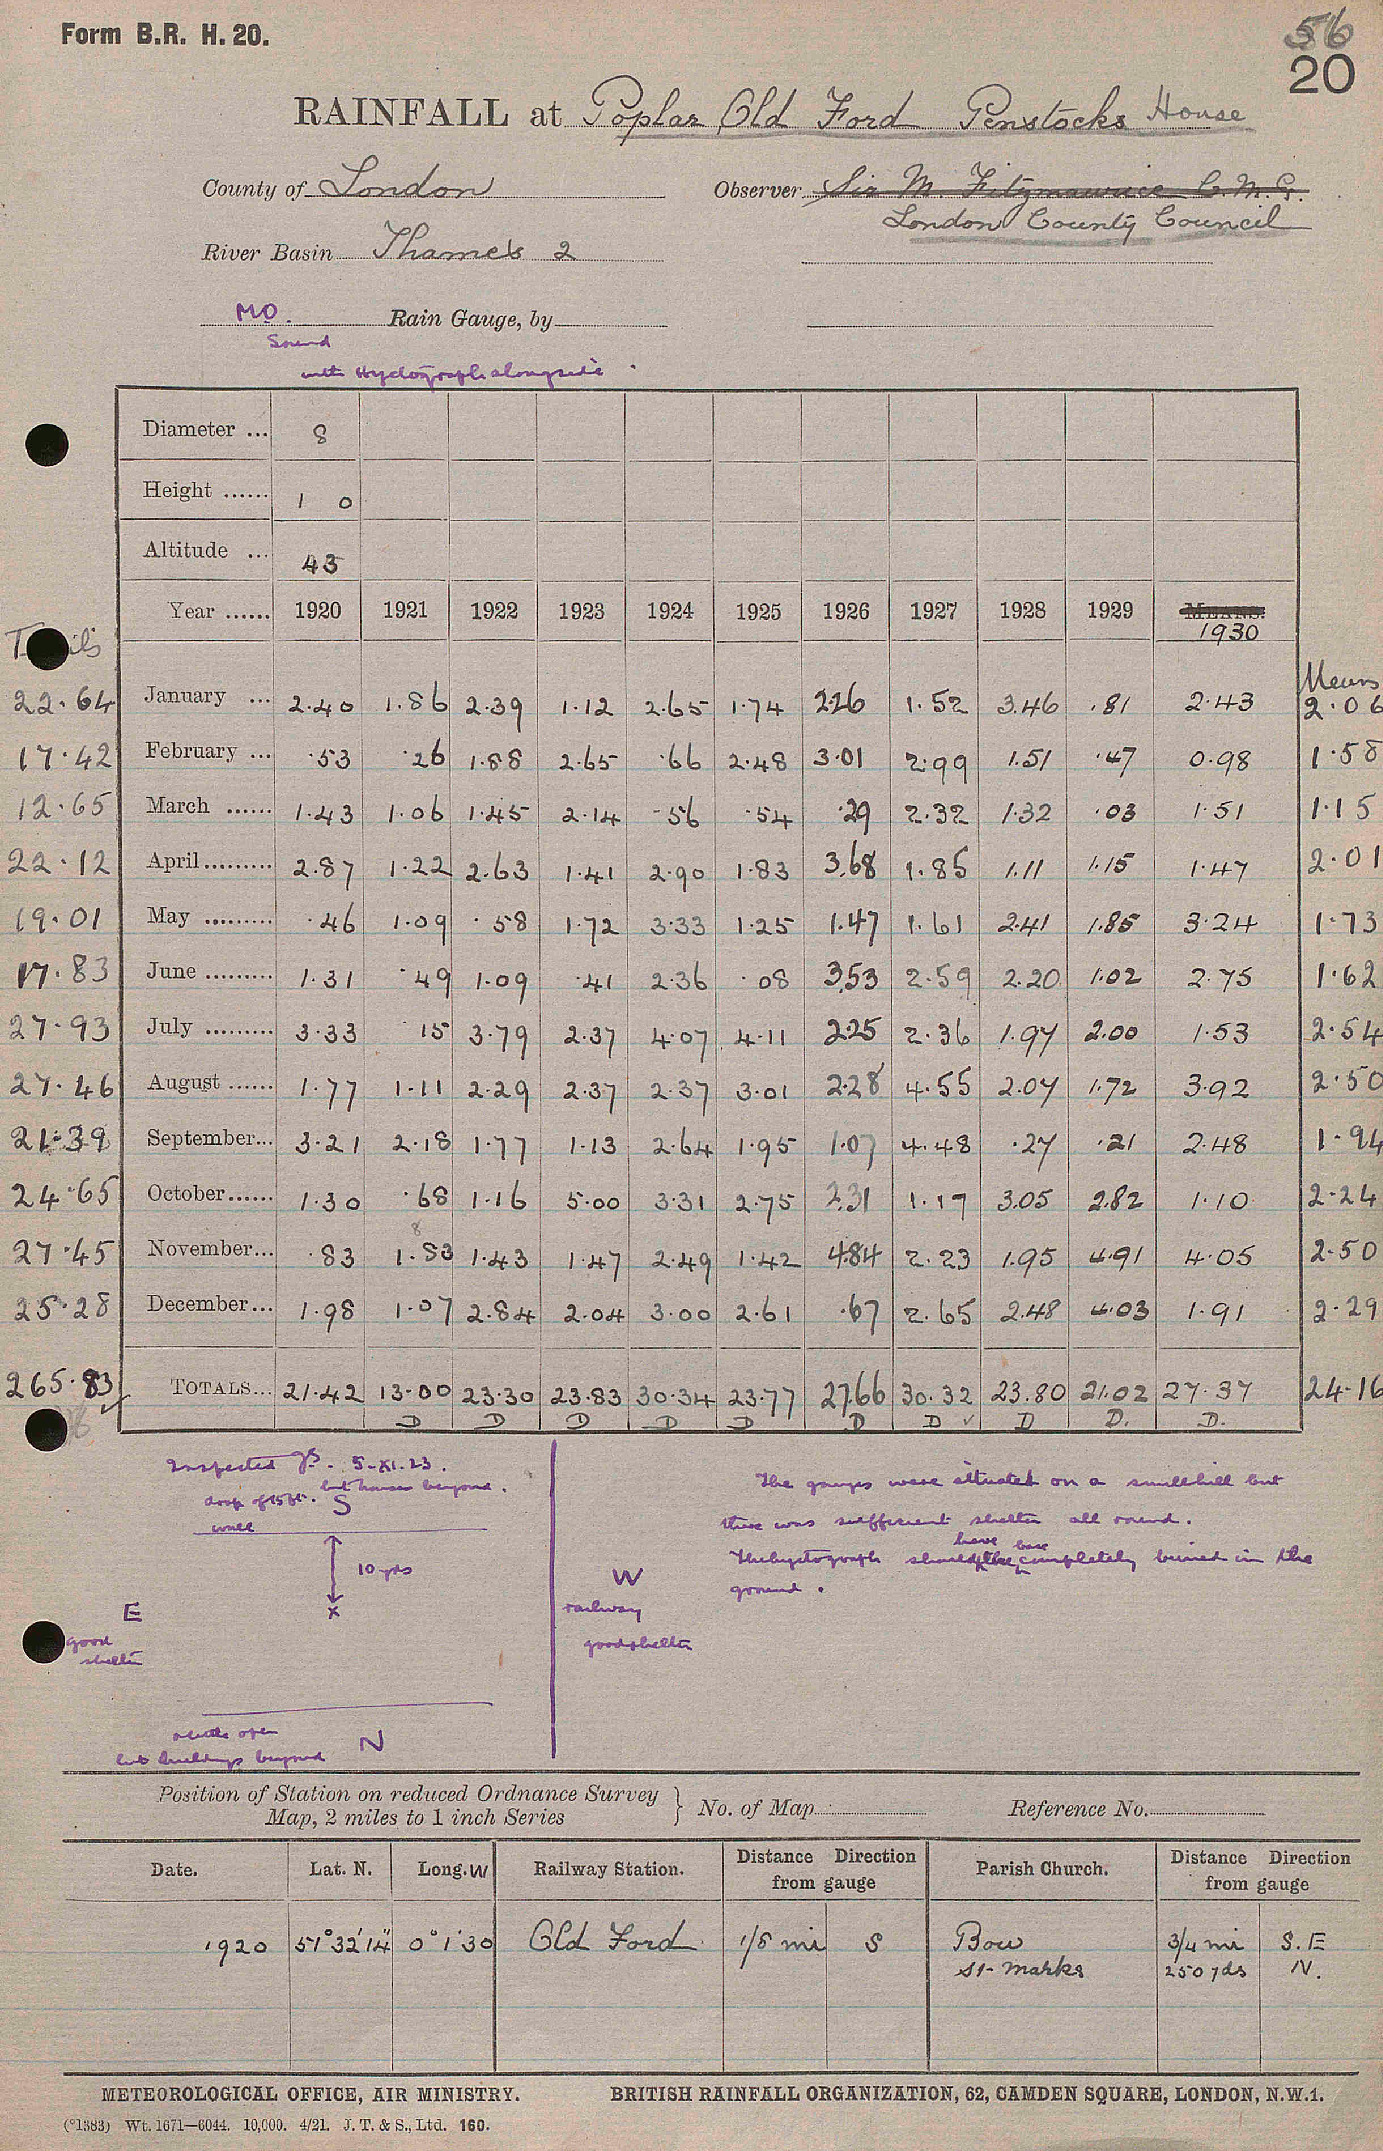 Form B.R. H. 20.
56
20
RAINFALL at Poplar Old Ford Penstocks House
County of London
Observer Sir M. Fitzmaurice C.M.G.
London County Council
River Basin Thames 2
MO. Rain Gauge, by
Sound
with Hyetograph alongside.
Diameter ... 8
Height ...... 1 0
Altitude ... 43
Year ...... 1920 1921 1922 1923 1924 1925 1926 1927 1928 1929 MEANS. 1930
Means
22.64 January ... 2.40 1.86 2.39 1.12 2.65 1.74 2.26 1.52 3.46 .81 2.43 2.06
17.42 February ... .53 .26 1.88 2.65 .66 2.48 3.01 2.99 1.51 .47 0.98 1.58
12.65 March ...... 1.43 1.06 1.45 2.14 .56 .54 .29 2.32 1.32 .03 1.51 1.15
22.12 April ......... 2.87 1.22 2.63 1.41 2.90 1.83 3.68 1.85 1.11 1.15 1.47 2.01
19.01 May ......... .46 1.09 .58 1.72 3.33 1.25 1.47 1.61 2.41 1.85 3.24 1.73
17.83 June ......... 1.31 .49 1.09 .41 2.36 .08 3.53 2.59 2.20 1.02 2.75 1.62
27.93 July ......... 3.33 .15 3.79 2.37 4.07 4.11 2.25 2.36 1.97 2.00 1.53 2.54
27.46 August ...... 1.77 1.11 2.29 2.37 2.37 3.01 2.28 4.55 2.07 1.72 3.92 2.50
21.39 September... 3.21 2.18 1.77 1.13 2.64 1.95 1.07 4.48 .27 .21 2.48 1.94
24.65 October...... 1.30 .68 1.16 5.00 3.31 2.75 2.31 1.17 3.05 2.82 1.10 2.24
27.45 November... .83 1.83 1.43 1.47 2.49 1.42 4.84 2.23 1.95 4.91 4.05 2.50
25.28 December... 1.98 1.07 2.84 2.04 3.00 2.61 .67 2.65 2.48 4.03 1.91 2.29
265.83 TOTALS... 21.42 13.00 23.30 23.83 30.34 23.77 27.66 30.32 23.80 21.02 27.37 24.16
D D D D D D D ✓ D D. D.
Inspected 5-XI-23.
drop of 15 ft. but houses beyond.
S
wall
10 yds
x
E
good
shelter
W
railway
good shelter
N
quite open
but buildings beyond
The gauges were situated on a small hill but
there was sufficient shelter all round.
The hyetograph should have base completely buried in the
ground.
Position of Station on reduced Ordnance Survey
Map, 2 miles to 1 inch Series
No. of Map
Reference No.
Date. Lat. N. Long. W Railway Station. Distance Direction from gauge Parish Church. Distance Direction from gauge
1920 51°32'14" 0°1'30 Old Ford 1/8 mi S Bow 3/4 mi S.E
St. Marks 250 yds N.
METEOROLOGICAL OFFICE, AIR MINISTRY. BRITISH RAINFALL ORGANIZATION, 62, CAMDEN SQUARE, LONDON, N.W.1.
(*1383) Wt. 1671—6044. 10,000. 4/21. J. T. & S., Ltd. 160.